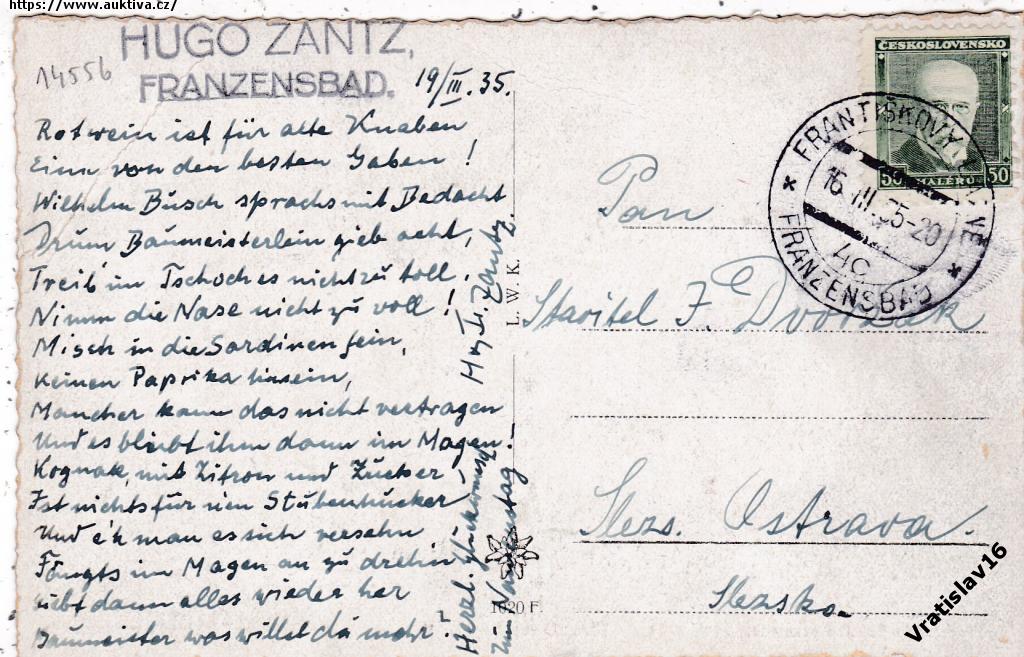 https://www.auktiva.cz/
HUGO ZANTZ,
FRANZENSBAD.
14556
19/III.35.
Rotwein ist für alte Knaben
Eine von den besten Gaben!
Wilhelm Busch sprachs mit Bedacht
Drum Baumeisterlein gieb acht,
Treib' im Tschoch es nicht zu toll,
Nimm die Nase nicht zu voll!
Misch in die Sardinen fein,
Keinen Paprika hinein,
Mancher kann das nicht vertragen
Und es bleibt ihm dann im Magen.
Kognak, mit Zitron und Zucker
Ist nichts für nen Stubenhucker
Und eh man es sich versehn
Fängts im Magen an zu drehn
Gibt dann alles wieder her
Baumeister was willst du mehr?
Herzl. Glückwunsch
zum Namenstag
L. W. K.
1020 F.
ČESKOSLOVENSKO
50 HALÉŘŮ 50
FRANTIŠKOVY LÁZNĚ
16.III.35-20
4c
FRANZENSBAD
Pan
Stavitel F. Dvořak
Slezs. Ostrava.
Slezsko
Vratislav16